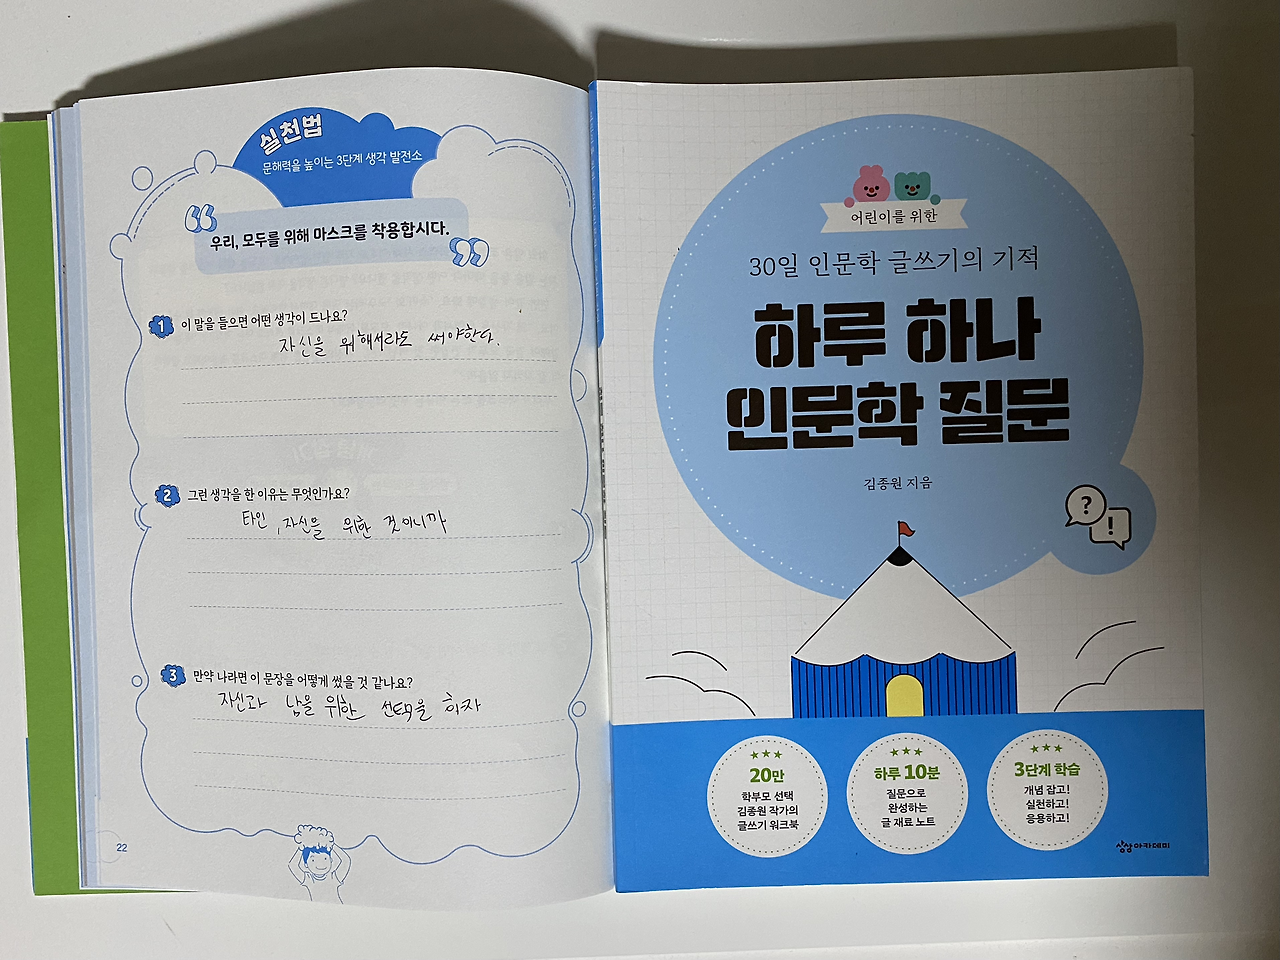 실천법
문해력을 높이는 3단계 생각 발전소
“
우리, 모두를 위해 마스크를 착용합시다.
”
1 이 말을 들으면 어떤 생각이 드나요?
자신을 위해서라도 써야한다.
2 그런 생각을 한 이유는 무엇인가요?
타인, 자신을 위한 것이니까
3 만약 나라면 이 문장을 어떻게 썼을 것 같나요?
자신과 남을 위한 선택을 하자
22
어린이를 위한
30일 인문학 글쓰기의 기적
하루 하나
인문학 질문
김종원 지음
?
!
★★★
20만
학부모 선택
김종원 작가의
글쓰기 워크북
★★★
하루 10분
질문으로
완성하는
글 재료 노트
★★★
3단계 학습
개념 잡고!
실천하고!
응용하고!
상상아카데미